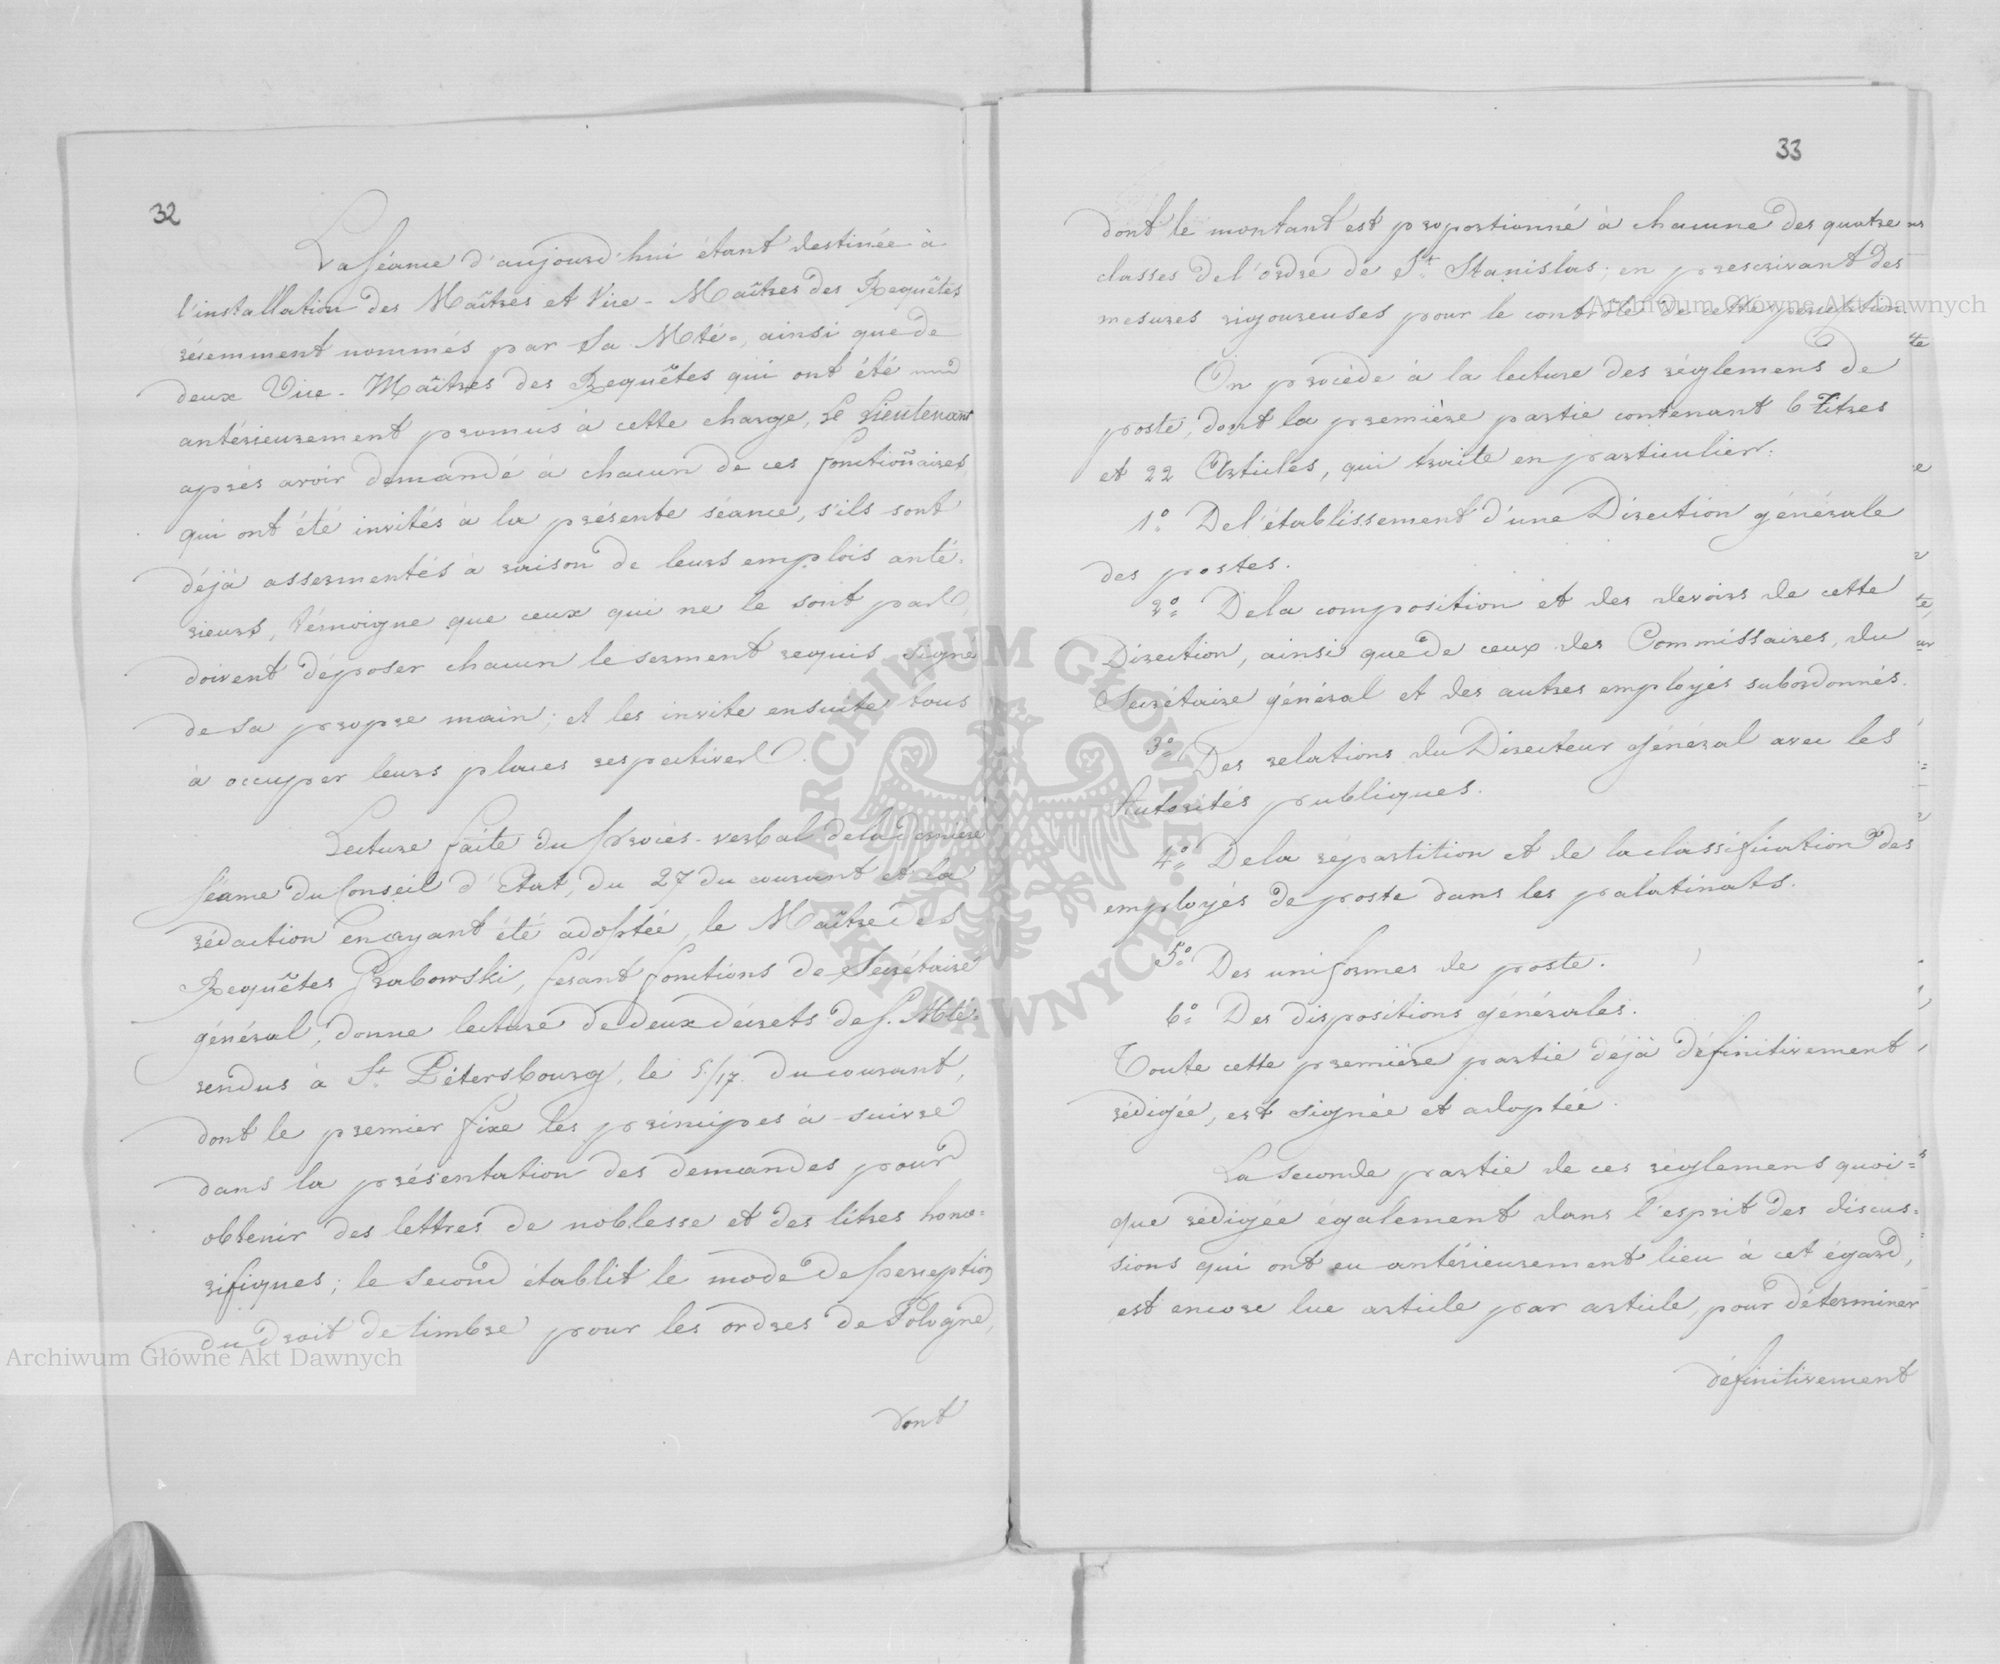 32
La Séance d'aujourd'hui étant destinée à
l'installation des Maîtres et Vice-Maîtres des Requêtes
récemment nommés par Sa Mté=, ainsi que de
deux Vice-Maîtres des Requêtes qui ont été
antérieurement promus à cette charge, Le Lieutenant
après avoir demandé à chacun de ces fonctionnaires
qui ont été invités à la présente séance, s'ils sont
déjà assermentés à raison de leurs emplois anté=
rieurs, témoigne que ceux qui ne le sont pas
doivent déposer chacun le serment requis signé
de sa propre main; et les invite ensuite tous
à occuper leurs places respectives.
Lecture faite du Procès-verbal de la dernière
Séance du Conseil d'Etat, du 27 du courant et la
rédaction en ayant été adoptée, le Maître des
Requêtes Grabowski, fesant fonctions de Secrétaire
général, donne lecture de deux décrets de S. Mté=
rendus à St. Pétersbourg, le 5/17. du courant,
dont le premier fixe les principes à suivre
dans la présentation des demandes pour
obtenir des lettres de noblesse et des titres hono=
rifiques; le second établit le mode de perception
du droit de timbre pour les ordres de Pologne,
dont
33
dont le montant est proportionné à chacune des quatre
classes de l'ordre de St. Stanislas; en prescrivant des
mesures rigoureuses pour le contrôle de cette perception.
On procède à la lecture des réglemens de
poste, dont la première partie contenant 6 Titres
et 22 Articles, qui traite en particulier:
1º De l'établissement d'une Direction générale
des postes.
2º De la composition et des devoirs de cette
Direction, ainsi que de ceux des Commissaires, du
Secrétaire général et des autres employés subordonnés.
3º Des relations du Directeur général avec les
Autorités publiques.
4º De la répartition et de la classification des
employés de poste dans les palatinats.
5º Des uniformes de poste.
6º Des dispositions générales.
Toute cette première partie déjà définitivement
rédigée, est signée et adoptée.
La seconde partie de ces réglemens quoi=
que rédigée également dans l'esprit des discus=
sions qui ont eu antérieurement lieu à cet égard,
est encore lue article par article, pour déterminer
définitivement
Archiwum Główne Akt Dawnych
Archiwum Główne Akt Dawnych
ARCHIWUM GŁÓWNE AKT DAWNYCH